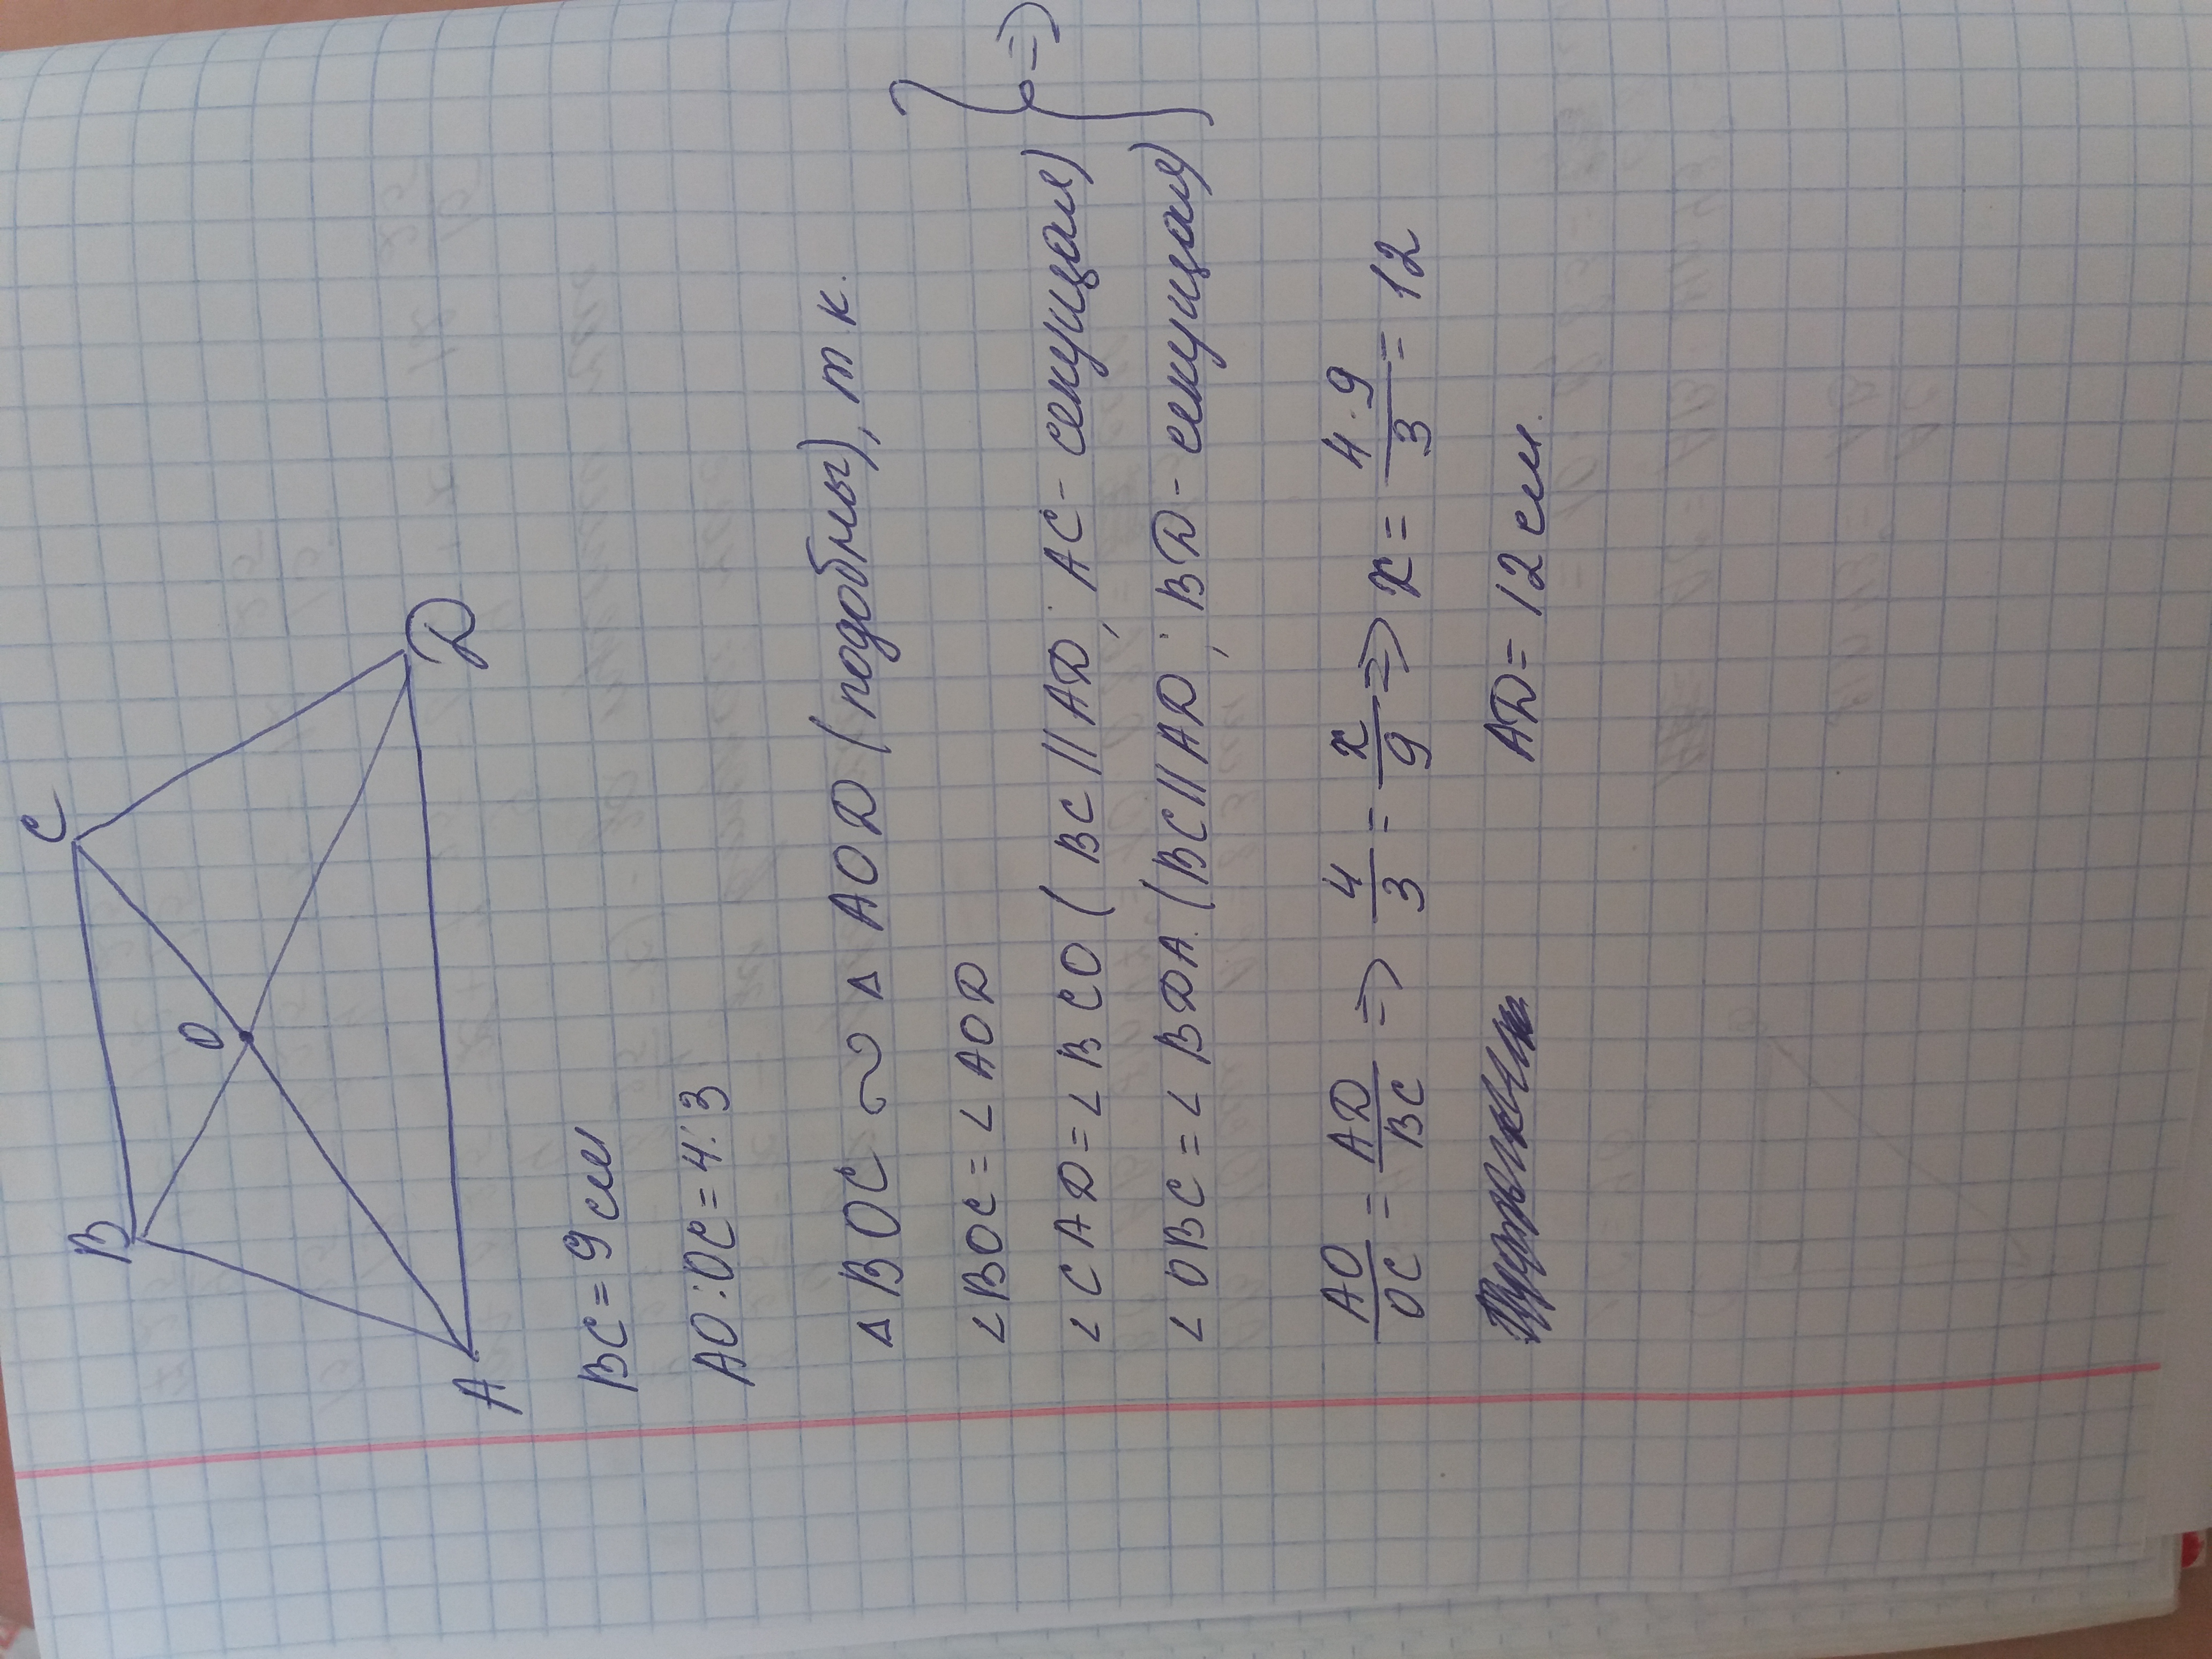 B C
O
A D
BC = 9 см
AO : OC = 4 : 3
Δ BOC ∾ Δ AOD (подобны), т к.
∠BOC = ∠AOD
∠CAD = ∠BCO (BC || AD; AC - секущая)
∠OBC = ∠BDA. (BC || AD; BD - секущая) } =>
AO/OC = AD/BC => 4/3 = x/9 => x = 4·9/3 = 12
AD = 12 см.